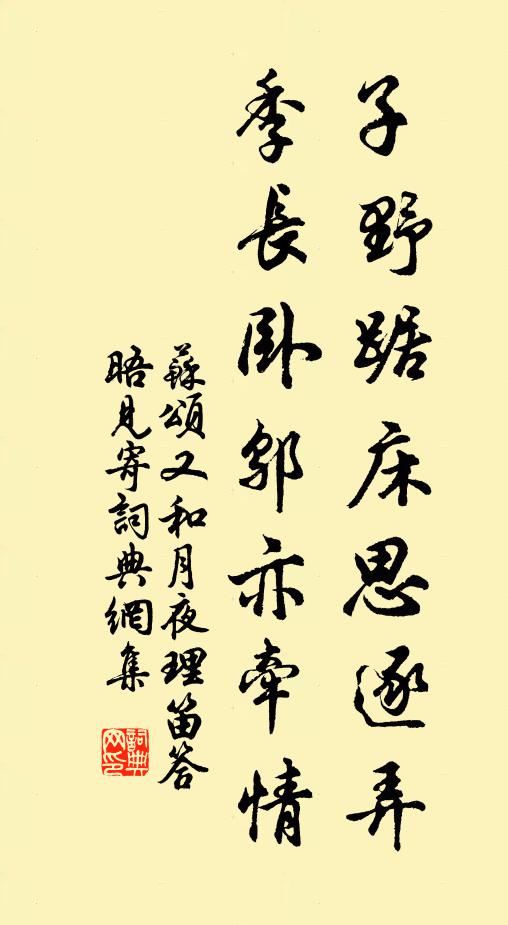 子野踞床思逐弄
季長卧鄔亦牽情
蘇頌又和月夜理笛答
晤見寄詞典網集
詞典
网印